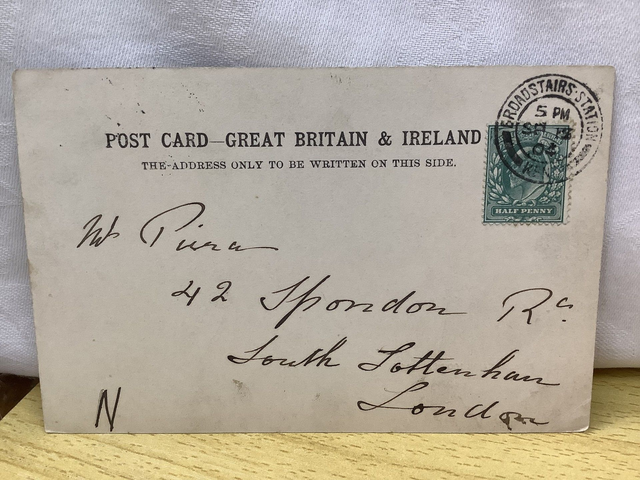 POST CARD—GREAT BRITAIN & IRELAND
THE ADDRESS ONLY TO BE WRITTEN ON THIS SIDE.
BROADSTAIRS·STATION
5 PM
SP 12
03
HALF PENNY
Mr
42 Spondon Rd
South Tottenham
London
N